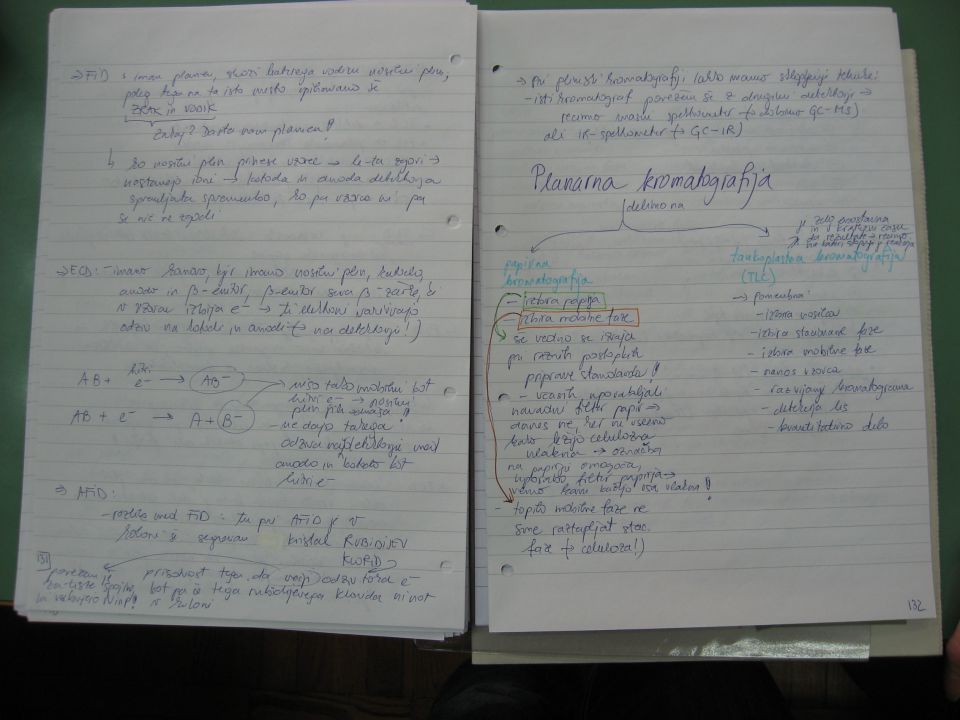 → FID : imam plamen, skozi katerega vodimo nosilni plin,
poleg tega na to isto mesto vpihavamo še
ZRAK in VODIK
zakaj? Da ta nam plamen!
ko nosilni plin prinese vzorec → le-ta zgori →
nastanejo ioni → katoda in anoda detektorja
spremljata spremembo, ko pa vzorca ni pa
se nič ne zgodi
→ ECD: - imamo komoro, kjer imamo nosilni plin, katodo,
anodo in β-emitor, β-emitor seva β⁻ žarke, ki
v vzorcu izbija e⁻ → ti elektroni
odziv na katodi in anodi (→ na detektorju!)
AB + hitri e⁻ → AB⁻
AB + e⁻ → A + B⁻
niso tako mobilni kot
hitri e⁻ → nosilni
plin jih odnaša!
- ne dajo takega
odziva med
anodo in katodo kot
hitri e⁻
→ AFID:
- razlika med FID: tu pri AFID je v
koloni še segrevan kristal RUBIDIJEV
KLORID
131
prisotnost tega da večji odziv toka e⁻
kot pa če tega rubidijevega klorida ni not
v koloni
povečan je
za tiste spojine,
ki vsebujejo N in P!
→ Pri plinski kromatografiji lahko imamo sklopljene tehnike:
- isti kromatograf povežem še z drugimi detektorji →
recimo masni spektrometer (→ dobimo GC-MS)
ali IR-spektrometer (→ GC-IR)
Planarna kromatografija
delimo na
zelo enostavna
in v kratkem času
da rezultate → recimo
na kateri stopnji je reakcija
papirna
kromatografija
- izbira papirja
- izbira mobilne faze
še vedno se izvaja
pri raznih postopkih
priprave standarda!!
- včasih uporabljali
navadni filter papir →
danes ne, ker ni vseeno
kako ležijo celulozna
vlakna → označba
na papirju omogoča,
uporabo filter papirja →
vemo kam kažejo vsa vlakna!
- topilo mobilne faze ne
sme raztapljat stac.
faze (→ celuloza!)
tankoplastna kromatografija
(TLC)
→ pomembna:
- izbira nosilca
- izbira stacionarne faze
- izbira mobilne faze
- nanos vzorca
- razvijanje kromatograma
- detekcija lis
- kvantitativno delo
132